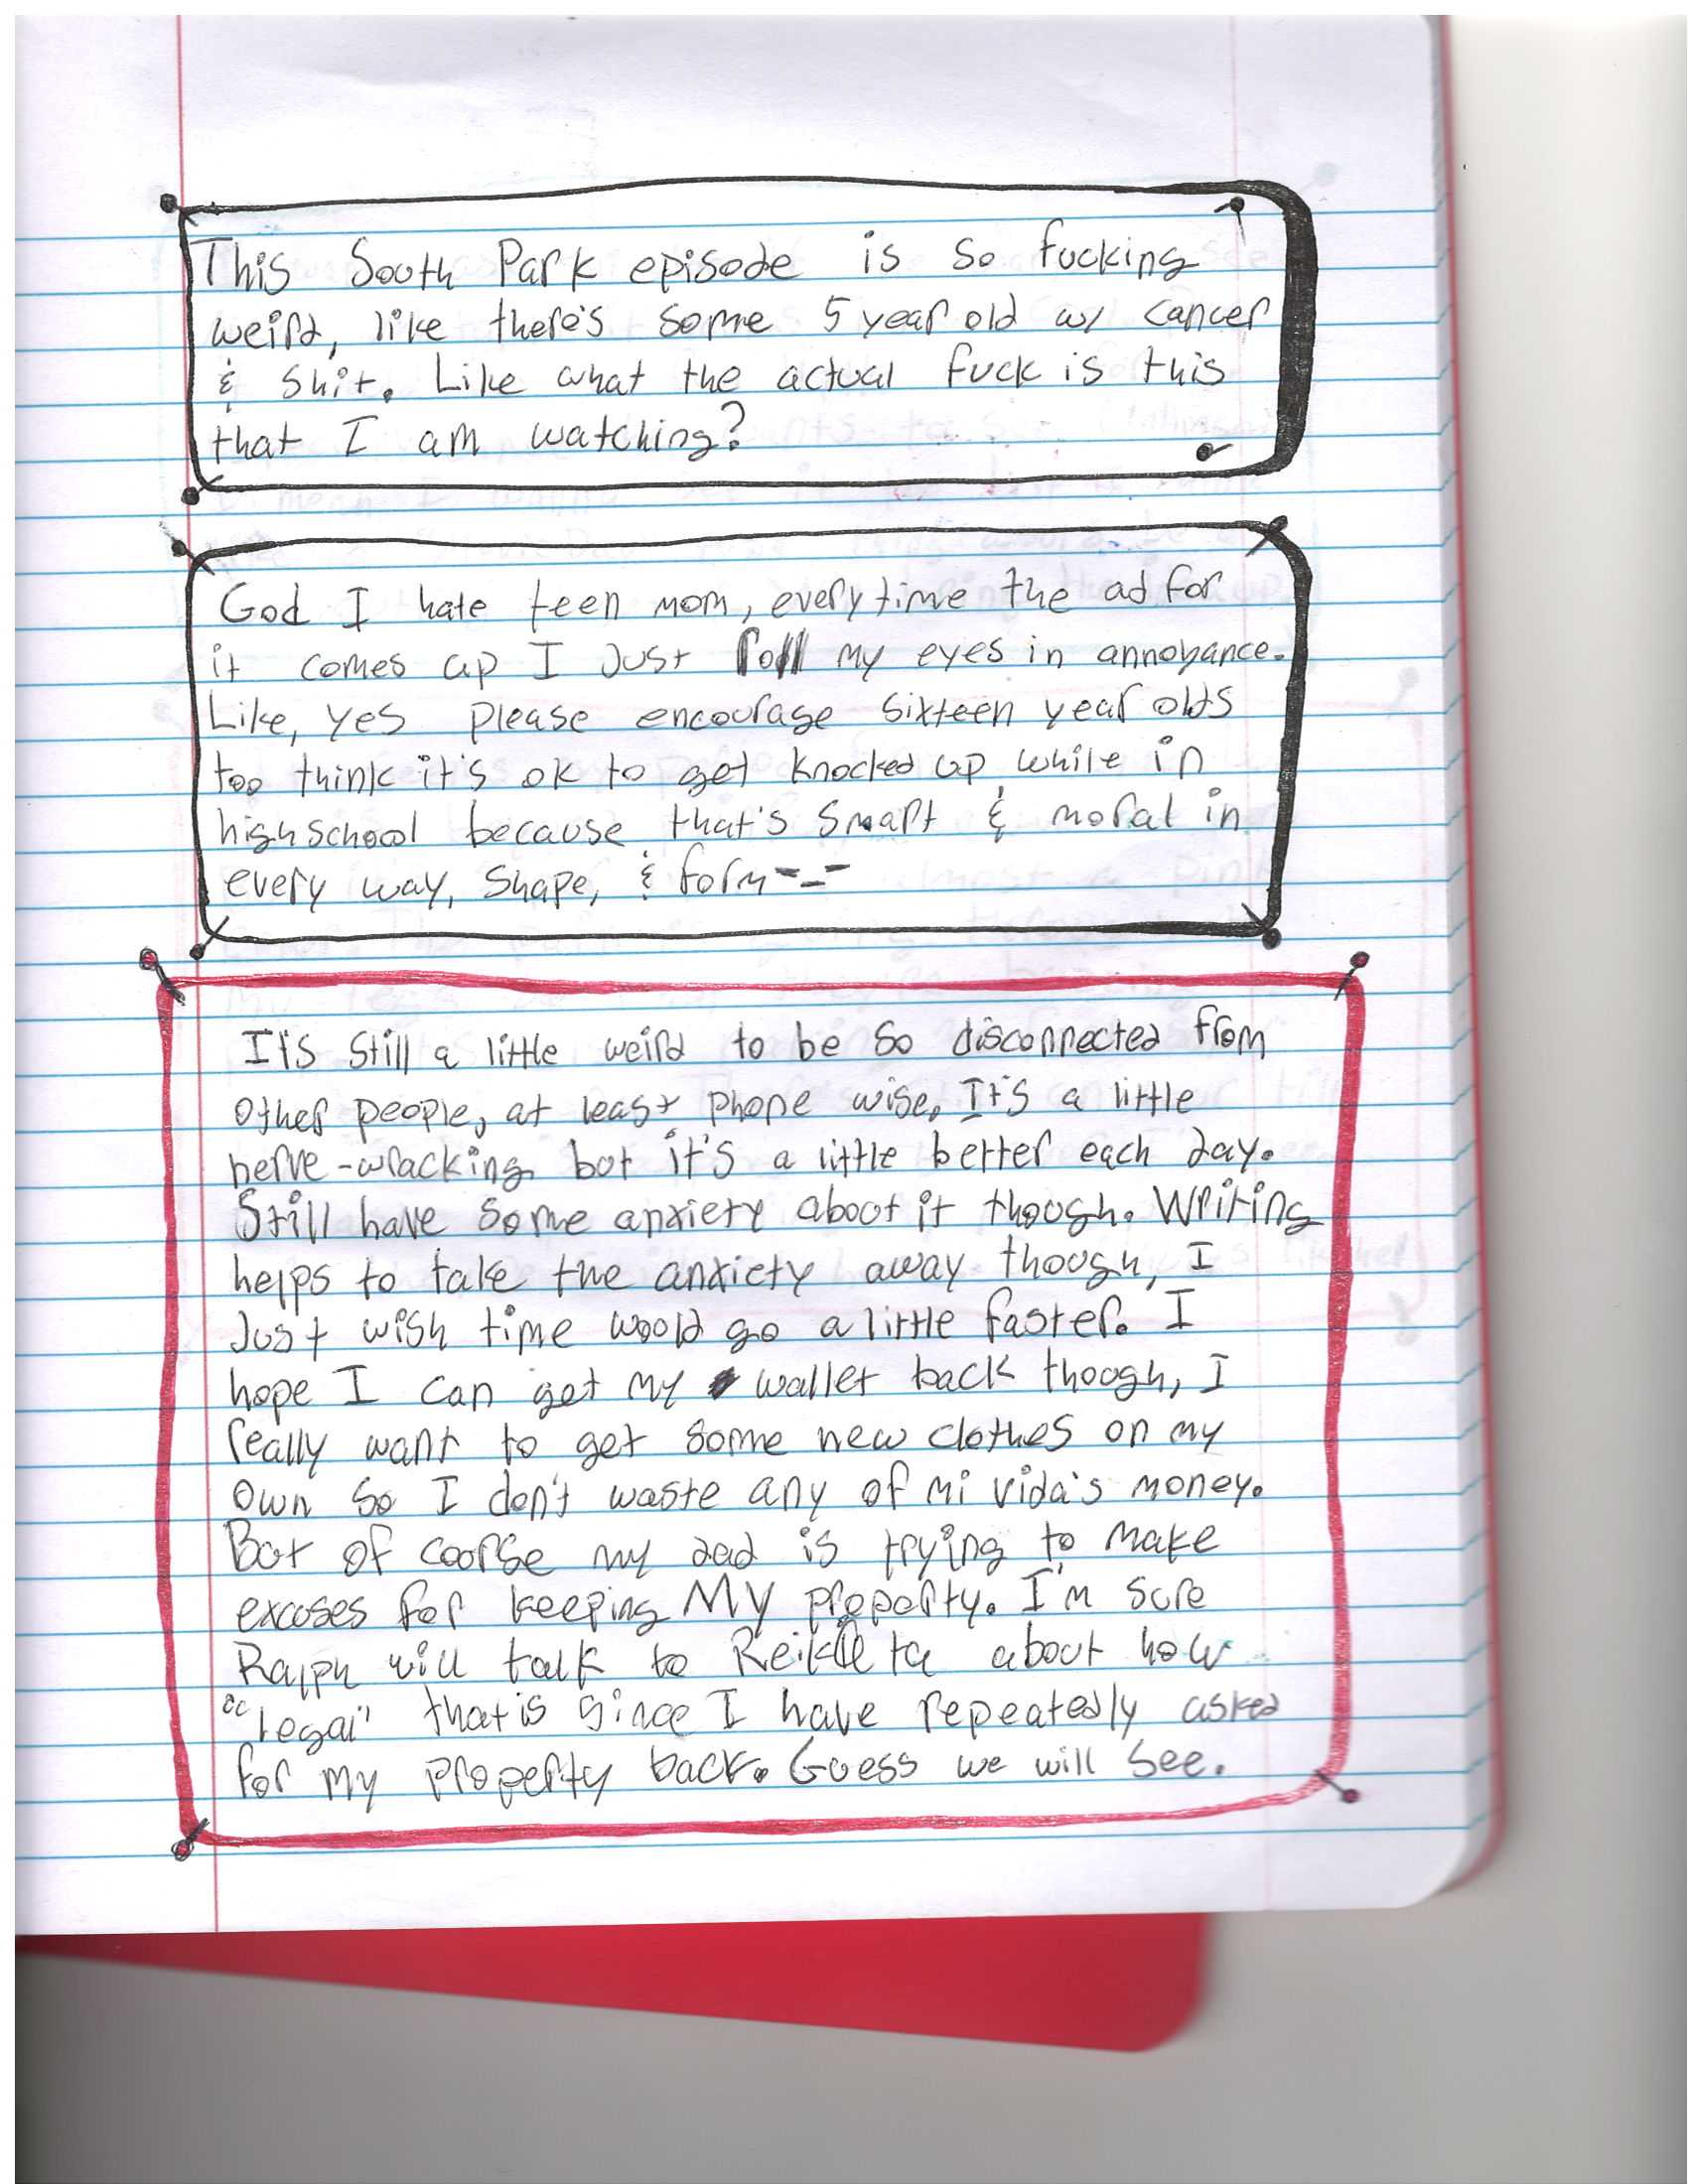 This South Park episode is so fucking
weird, like there's some 5 year old w/ cancer
& shit. Like what the actual fuck is this
that I am watching?
God I hate teen mom, everytime the ad for
it comes up I Just roll my eyes in annoyance.
Like, yes please encourage sixteen year olds
too think it's ok to get knocked up while in
highschool because that's smart & moral in
every way, shape, & form -_-
It's still a little weird to be so disconnected from
other people, at least phone wise. It's a little
nerve-wracking but it's a little better each day.
Still have some anxiety about it though. Writing
helps to take the anxiety away though, I
Just wish time would go a little faster. I
hope I can get my wallet back though, I
really want to get some new clothes on my
own so I don't waste any of mi vida's money.
But of course my dad is trying to make
excuses for keeping My property. I'm sure
Ralph will talk to about how
"legal" that is since I have repeatedly asked
for my property back. Guess we will see.